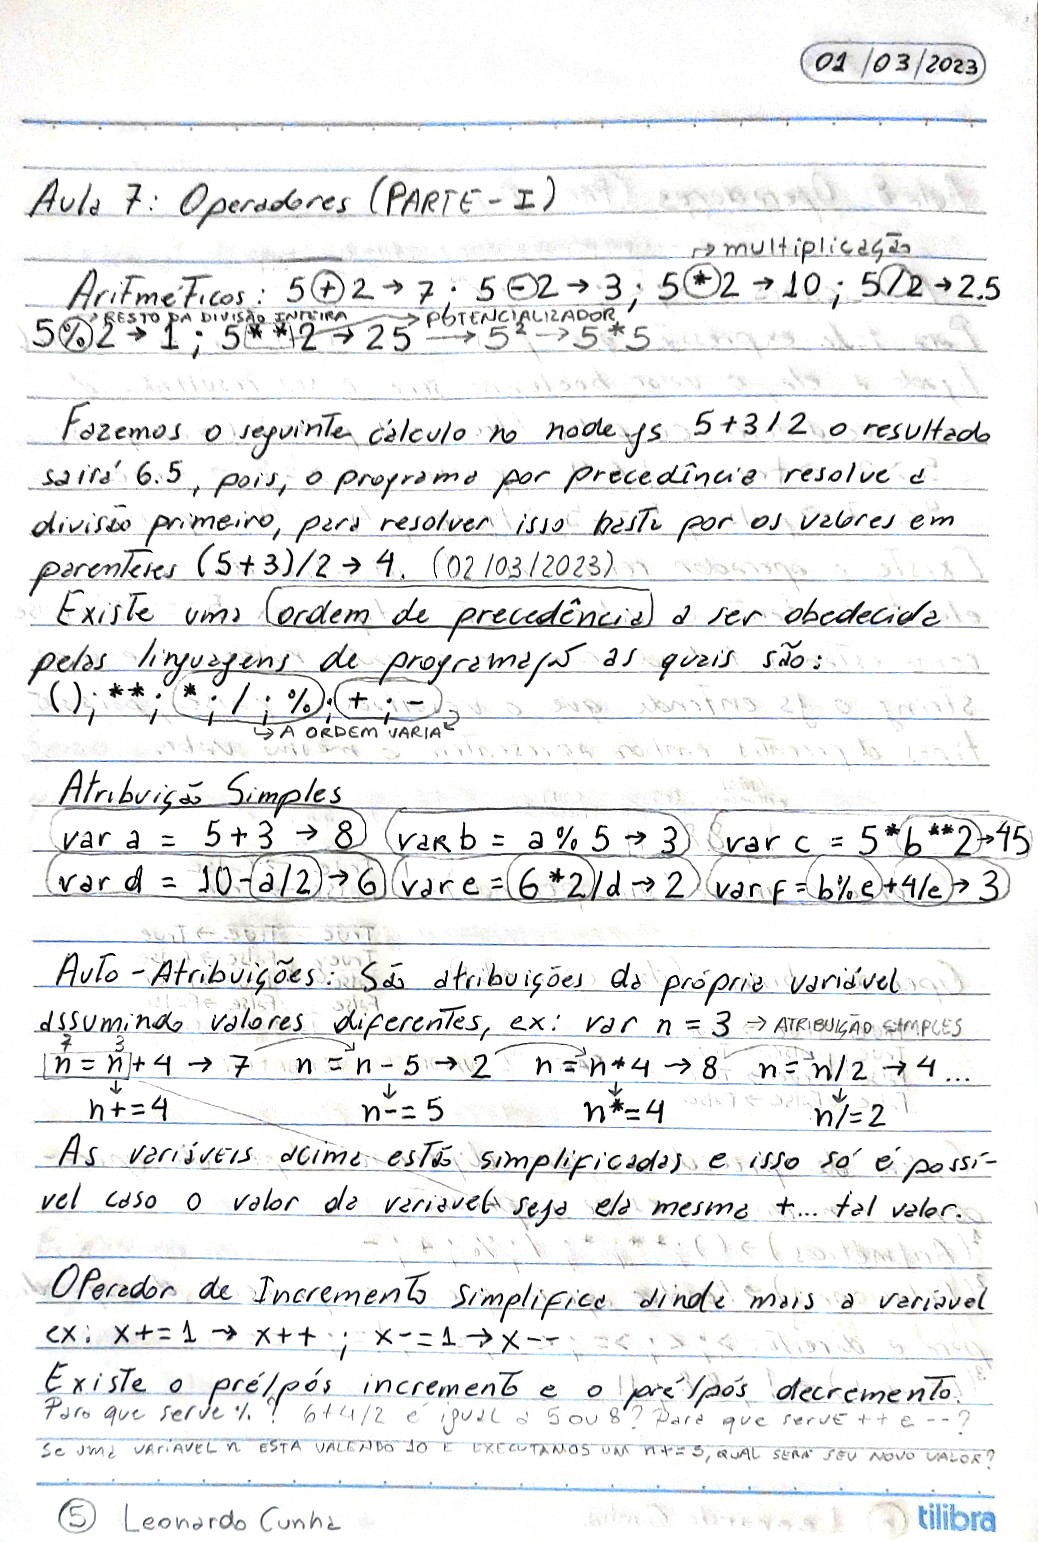 01/03/2023
Aula 7: Operadores (PARTE-I)
→ multiplicação
Aritméticos: 5+2→7; 5-2→3; 5*2→10; 5/2→2.5
→ RESTO DA DIVISÃO INTEIRA → POTENCIALIZADOR
5%2→1; 5**2→25 → 5² → 5*5
Fazemos o seguinte cálculo no node js 5+3/2 o resultado
sairá 6.5, pois, o programa por precedência resolve a
divisão primeiro, para resolver isso basta por os valores em
parenteses (5+3)/2→4. (02/03/2023)
Existe uma ordem de precedência a ser obedecida
pelas linguagens de programação as quais são:
(); **; *; /; %; +; -
→ A ORDEM VARIA
Atribuição Simples
var a = 5+3 → 8 var b = a % 5 → 3 var c = 5*b**2→45
var d = 10-a/2→6 var e = 6*2/d→2 var f = b%e+4/e→3
Auto-Atribuições: São atribuições da própria variável
assumindo valores diferentes, ex: var n = 3 → ATRIBUIÇÃO SIMPLES
7 3
n = n+4 → 7 n = n-5 → 2 n = n*4 → 8 n = n/2 → 4...
↓ ↓ ↓ ↓
n+=4 n-=5 n*=4 n/=2
As variáveis acima estão simplificadas e isso só é possí-
vel caso o valor da variavel seja ela mesma +... tal valor.
Operador de Incremento simplifica ainda mais a variável
ex: x+=1 → x++ ; x-=1→x--
Existe o pré/pós incremento e o pré/pós decremento.
Para que serve %? 6+4/2 é igual a 5 ou 8? Para que serve ++ e --?
SE UMA VARIAVEL n ESTA VALENDO 10 E EXECUTAMOS UM n+=5, QUAL SERÁ SEU NOVO VALOR?
5 Leonardo Cunha
tilibra